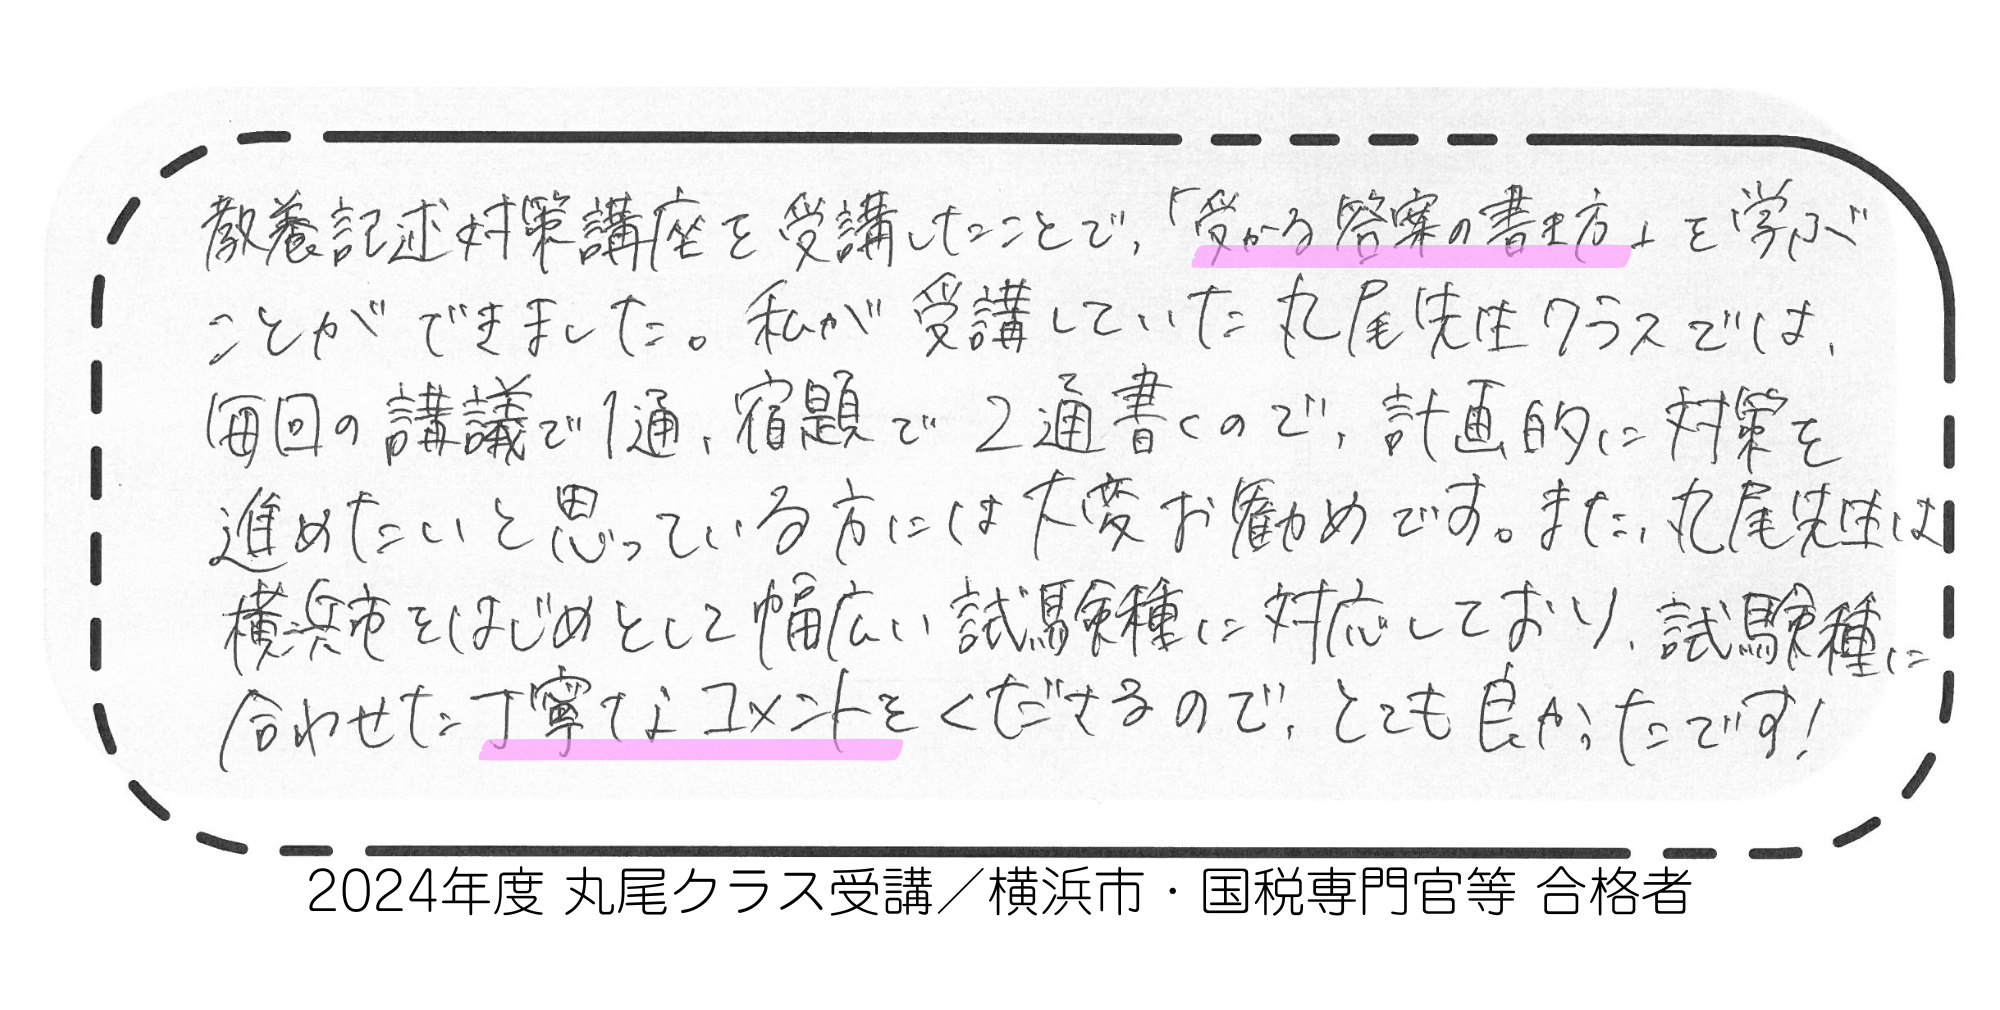 教養記述対策講座を受講したことで、「受かる答案の書き方」を学ぶ
ことができました。私が受講していた丸尾先生クラスでは、
毎回の講議で1通、宿題で2通書くので、計画的に対策を
進めたいと思っている方には大変お勧めです。また、丸尾先生は
横浜市をはじめとして幅広い試験種に対応しており、試験種に
合わせた丁寧なコメントをくださるので、とても良かったです!
2024年度 丸尾クラス受講/横浜市・国税専門官等 合格者